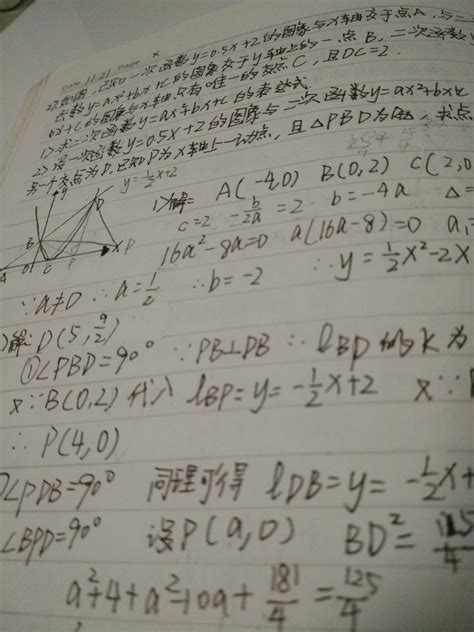 2).如图,已知一次函数y=0.5x+2的图象与x轴交于点A,与二次
函数y=ax²+bx+c的图象交于y轴上的一点B,二次函数y=
ax²+bx+c的图象与x轴只有唯一的交点C,且OC=2.
1)求二次函数y=ax²+bx+c的表达式
2)设一次函数y=0.5x+2的图象与二次函数y=ax²+bx+c
另一个交点为D,已知P为x轴上一动点,且△PBD为 求点
y=½x+2
1)解: A(-4,0) B(0,2) C(2,0
c=2 -b/2a=2 b=-4a △=
16a²-8a=0 a(16a-8)=0 a₁
∵a≠0 ∴a=1/2 ∴b=-2 ∴y=½x²-2x
y
D
B
A O C P x P
)解: D(5,9/2)
①∠PBD=90° ∵PB⊥DB ∵lBD的k为
又∵B(0,2)代入 lBP=y=-½x+2 又∵
∴P(4,0)
∠PDB=90° 同理可得 lDB=y=-½x+
∠BPD=90° 设P(a,0) BD²=125/4
a²+4+a²-10a+181/4=125/4